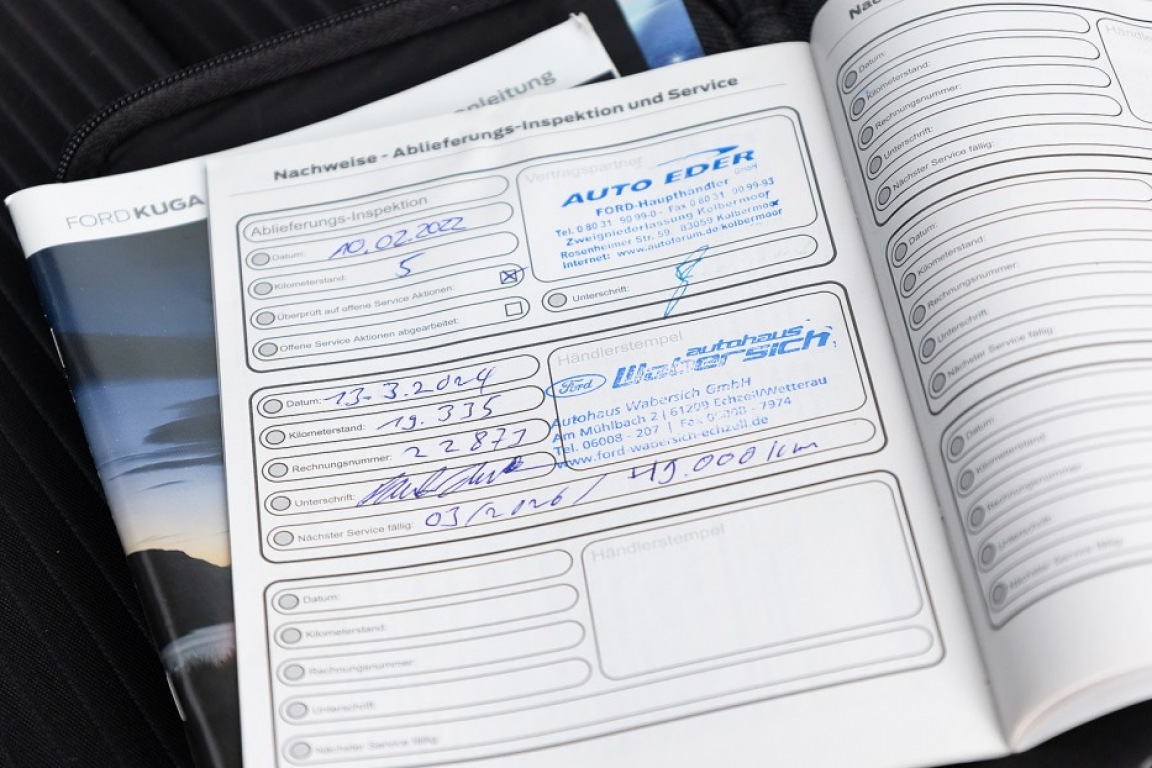 nleitung
FORD KUGA
Nachweise - Ablieferungs-Inspektion und Service
Ablieferungs-Inspektion
Datum: 10.02.2022
Kilometerstand: 5
Überprüft auf offene Service Aktionen:
Offene Service Aktionen abgearbeitet:
Vertragspartner
AUTO EDER
GmbH
FORD-Haupthändler
Tel. 0 80 31 90 99-0 - Fax 0 80 31 90 99-93
Zweigniederlassung Kolbermoor
Rosenheimer Str. 59 83059 Kolbermoor
Internet: www.autoforum.de/kolbermoor
Unterschrift:
Datum: 13.3.2024
Kilometerstand: 19.335
Rechnungsnummer: 22871
Unterschrift:
Nächster Service fällig: 03/2026/ 49.000 km
Händlerstempel
autohaus
Ford Wabersich
Autohaus Wabersich GmbH
Am Mühlbach 2 | 61209 Echzell/Wetterau
Tel. 06008 - 207 | Fax 06008 - 7974
www.ford-wabersich-echzell.de
Datum:
Kilometerstand:
Rechnungsnummer:
Unterschrift:
Nächster Service fällig:
Händlerstempel
Datum:
Kilometerstand:
Rechnungsnummer:
Unterschrift:
Nächster Service fällig:
Datum:
Kilometerstand:
Rechnungsnummer:
Unterschrift:
Nächster Service fällig:
Datum:
Kilometerstand:
Rechnungsnummer:
Unterschrift:
Nächster Service fällig: